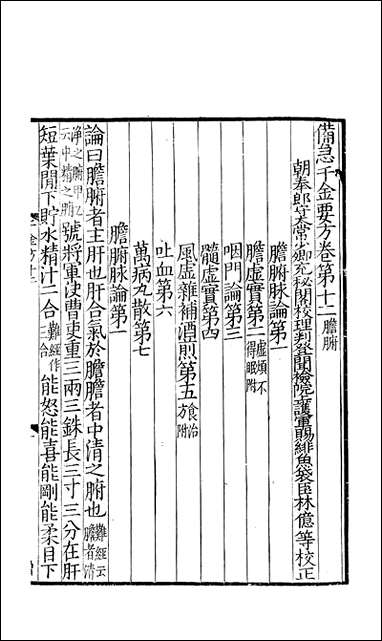 備急千金要方卷第十二 膽腑
朝奉郎守太常少卿充秘閣校理判登聞檢院上護軍賜緋魚袋臣林億等校正
膽腑脉論第一
膽虛實第二 虛煩不得眠附
咽門論第三
髓虛實第四
風虛雜補酒煎第五 食治方附
吐血第六
萬病丸散第七
膽腑脉論第一
論曰膽腑者主肝也肝合氣於膽膽者中清之腑也 難經云膽者清
淨之腑甲乙云中精之腑 號將軍決曹吏重三兩三銖長三寸三分在肝
短葉間下貯水精汁二合 難經作三合 能怒能喜能剛能柔目下